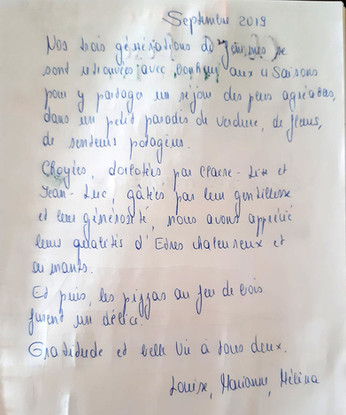 Septembre 2019
Nos trois générations de femmes se
sont retrouvées avec bonheur aux 4 Saisons
pour y partager un séjour des plus agréables,
dans un petit paradis de verdure, de fleurs,
de senteurs potagères.
Choyées, dorlotées par Claire-Lise et
Jean-Luc, gâtées par leur gentillesse
et leur générosité, nous avons apprécié
leurs qualités d'Etres chaleureux et
aimants.
Et puis, les pizzas au feu de bois
furent un délice.
Gratitude et belle vie à tous deux.
Louise, Marianne, Mélina